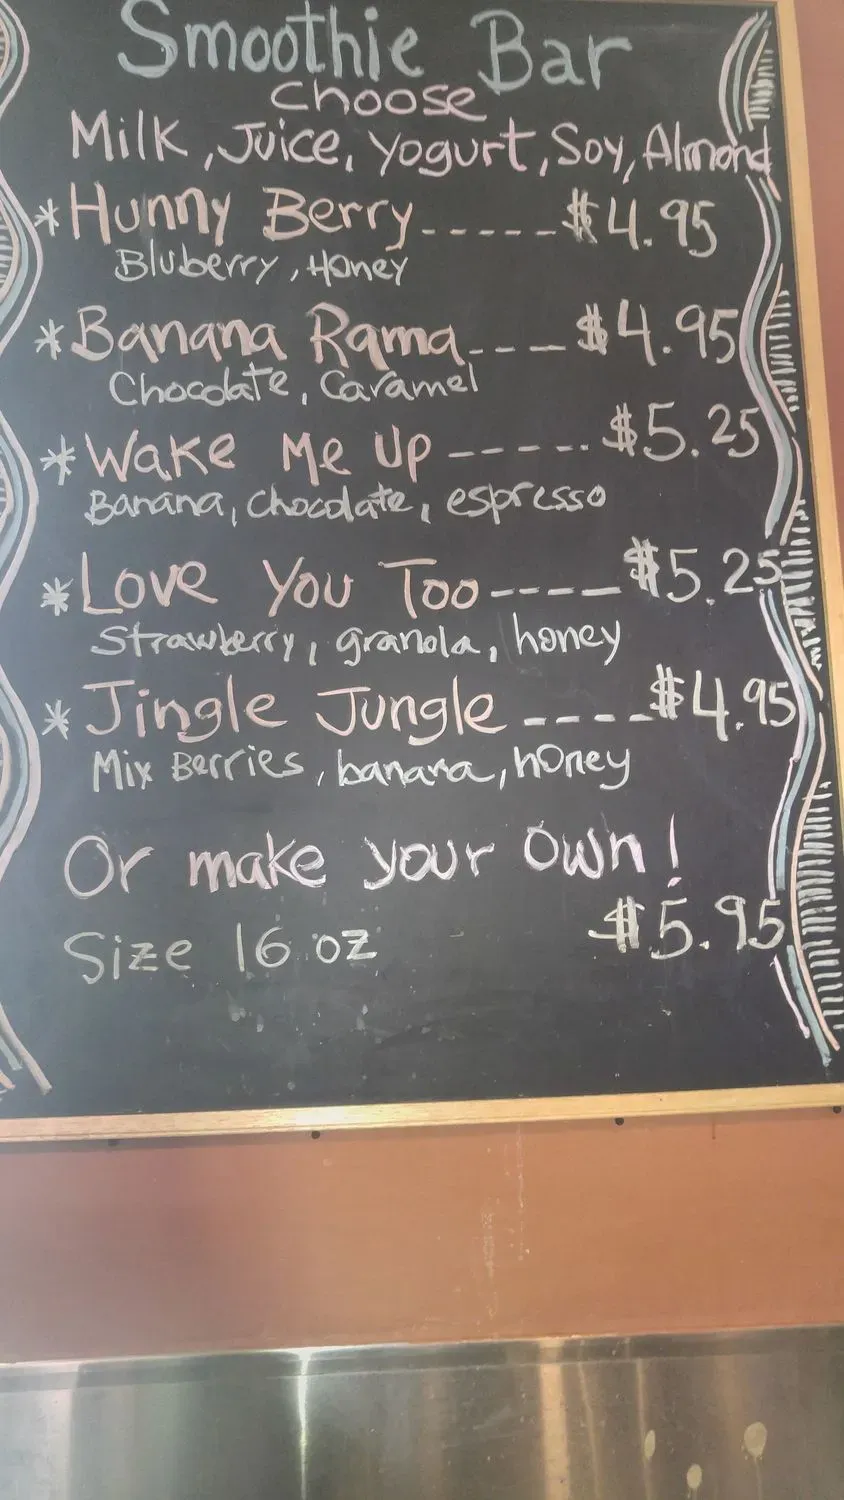 Smoothie Bar
Choose
Milk, Juice, Yogurt, Soy, Almond
*Hunny Berry-----$4.95
Bluberry, Honey
*Banana Rama---$4.95
Chocolate, Caramel
*Wake Me Up-----$5.25
Banana, chocolate, espresso
*Love You Too----$5.25
Strawberry, granola, honey
*Jingle Jungle----$4.95
Mix Berries, banana, honey
Or make your Own!
Size 16 oz $5.95